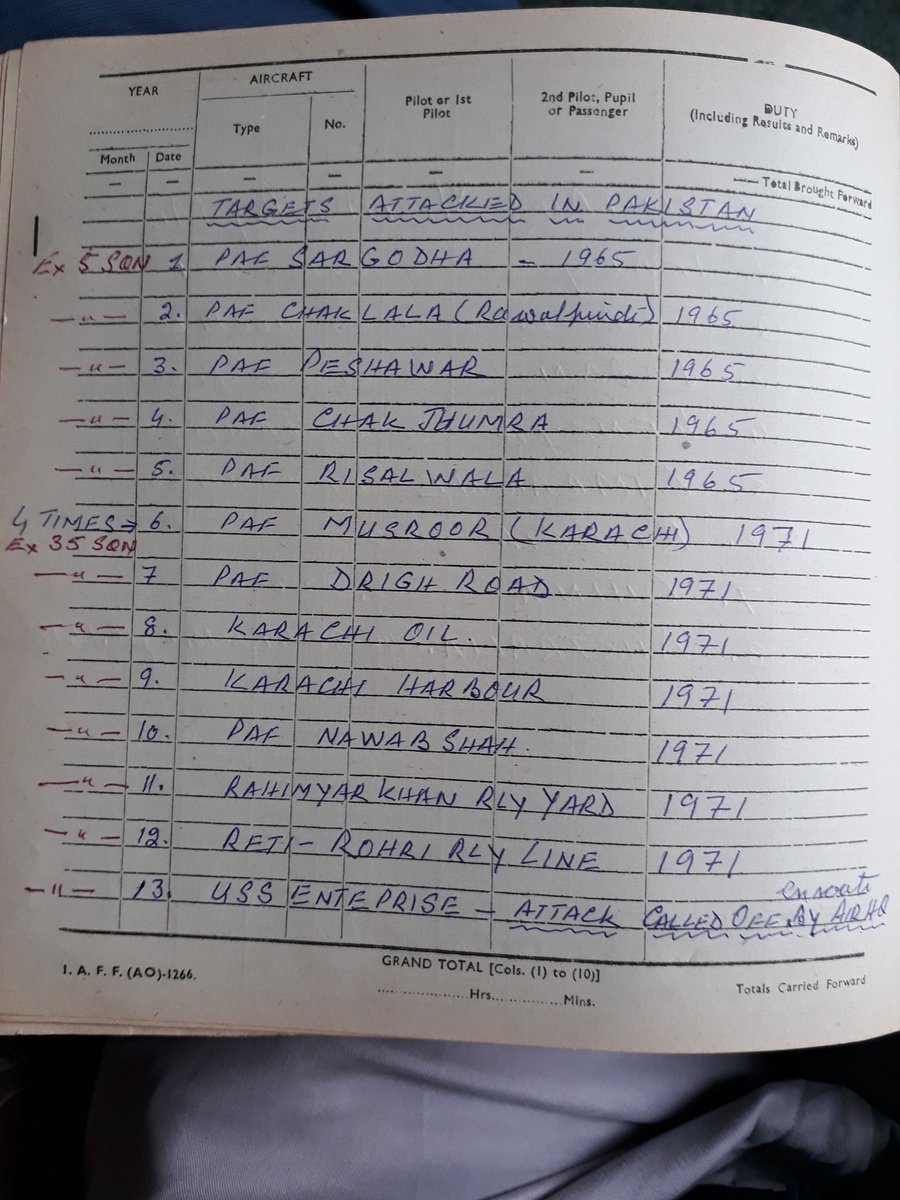 YEAR
AIRCRAFT
Pilot or 1st Pilot
2nd Pilot, Pupil or Passenger
DUTY
(Including Results and Remarks)
Type
No.
Month
Date
— Total Brought Forward
TARGETS ATTACKED IN PAKISTAN
Ex 5 SQN 1 PAF SARGODHA - 1965
—"— 2. PAF CHAKLALA (Rawalpindi) 1965
—"— 3. PAF PESHAWAR 1965
—"— 4. PAF CHAK JHUMRA 1965
—"— 5. PAF RISALWALA 1965
4 TIMES → 6. PAF MUSROOR (KARACHI) 1971
Ex 35 SQN
—"— 7 PAF DRIGH ROAD 1971
—"— 8. KARACHI OIL. 1971
—"— 9. KARACHI HARBOUR 1971
—"— 10. PAF NAWABSHAH. 1971
—"— 11. RAHIMYAR KHAN RLY YARD 1971
—"— 12. RETI - ROHRI RLY LINE 1971
—"— 13. USS ENTEPRISE - ATTACK CALLED OFF enroute By AIRHQ
I. A. F. F. (AO)-1266.
GRAND TOTAL [Cols. (1) to (10)]
Totals Carried Forward
..................Hrs..............Mins.